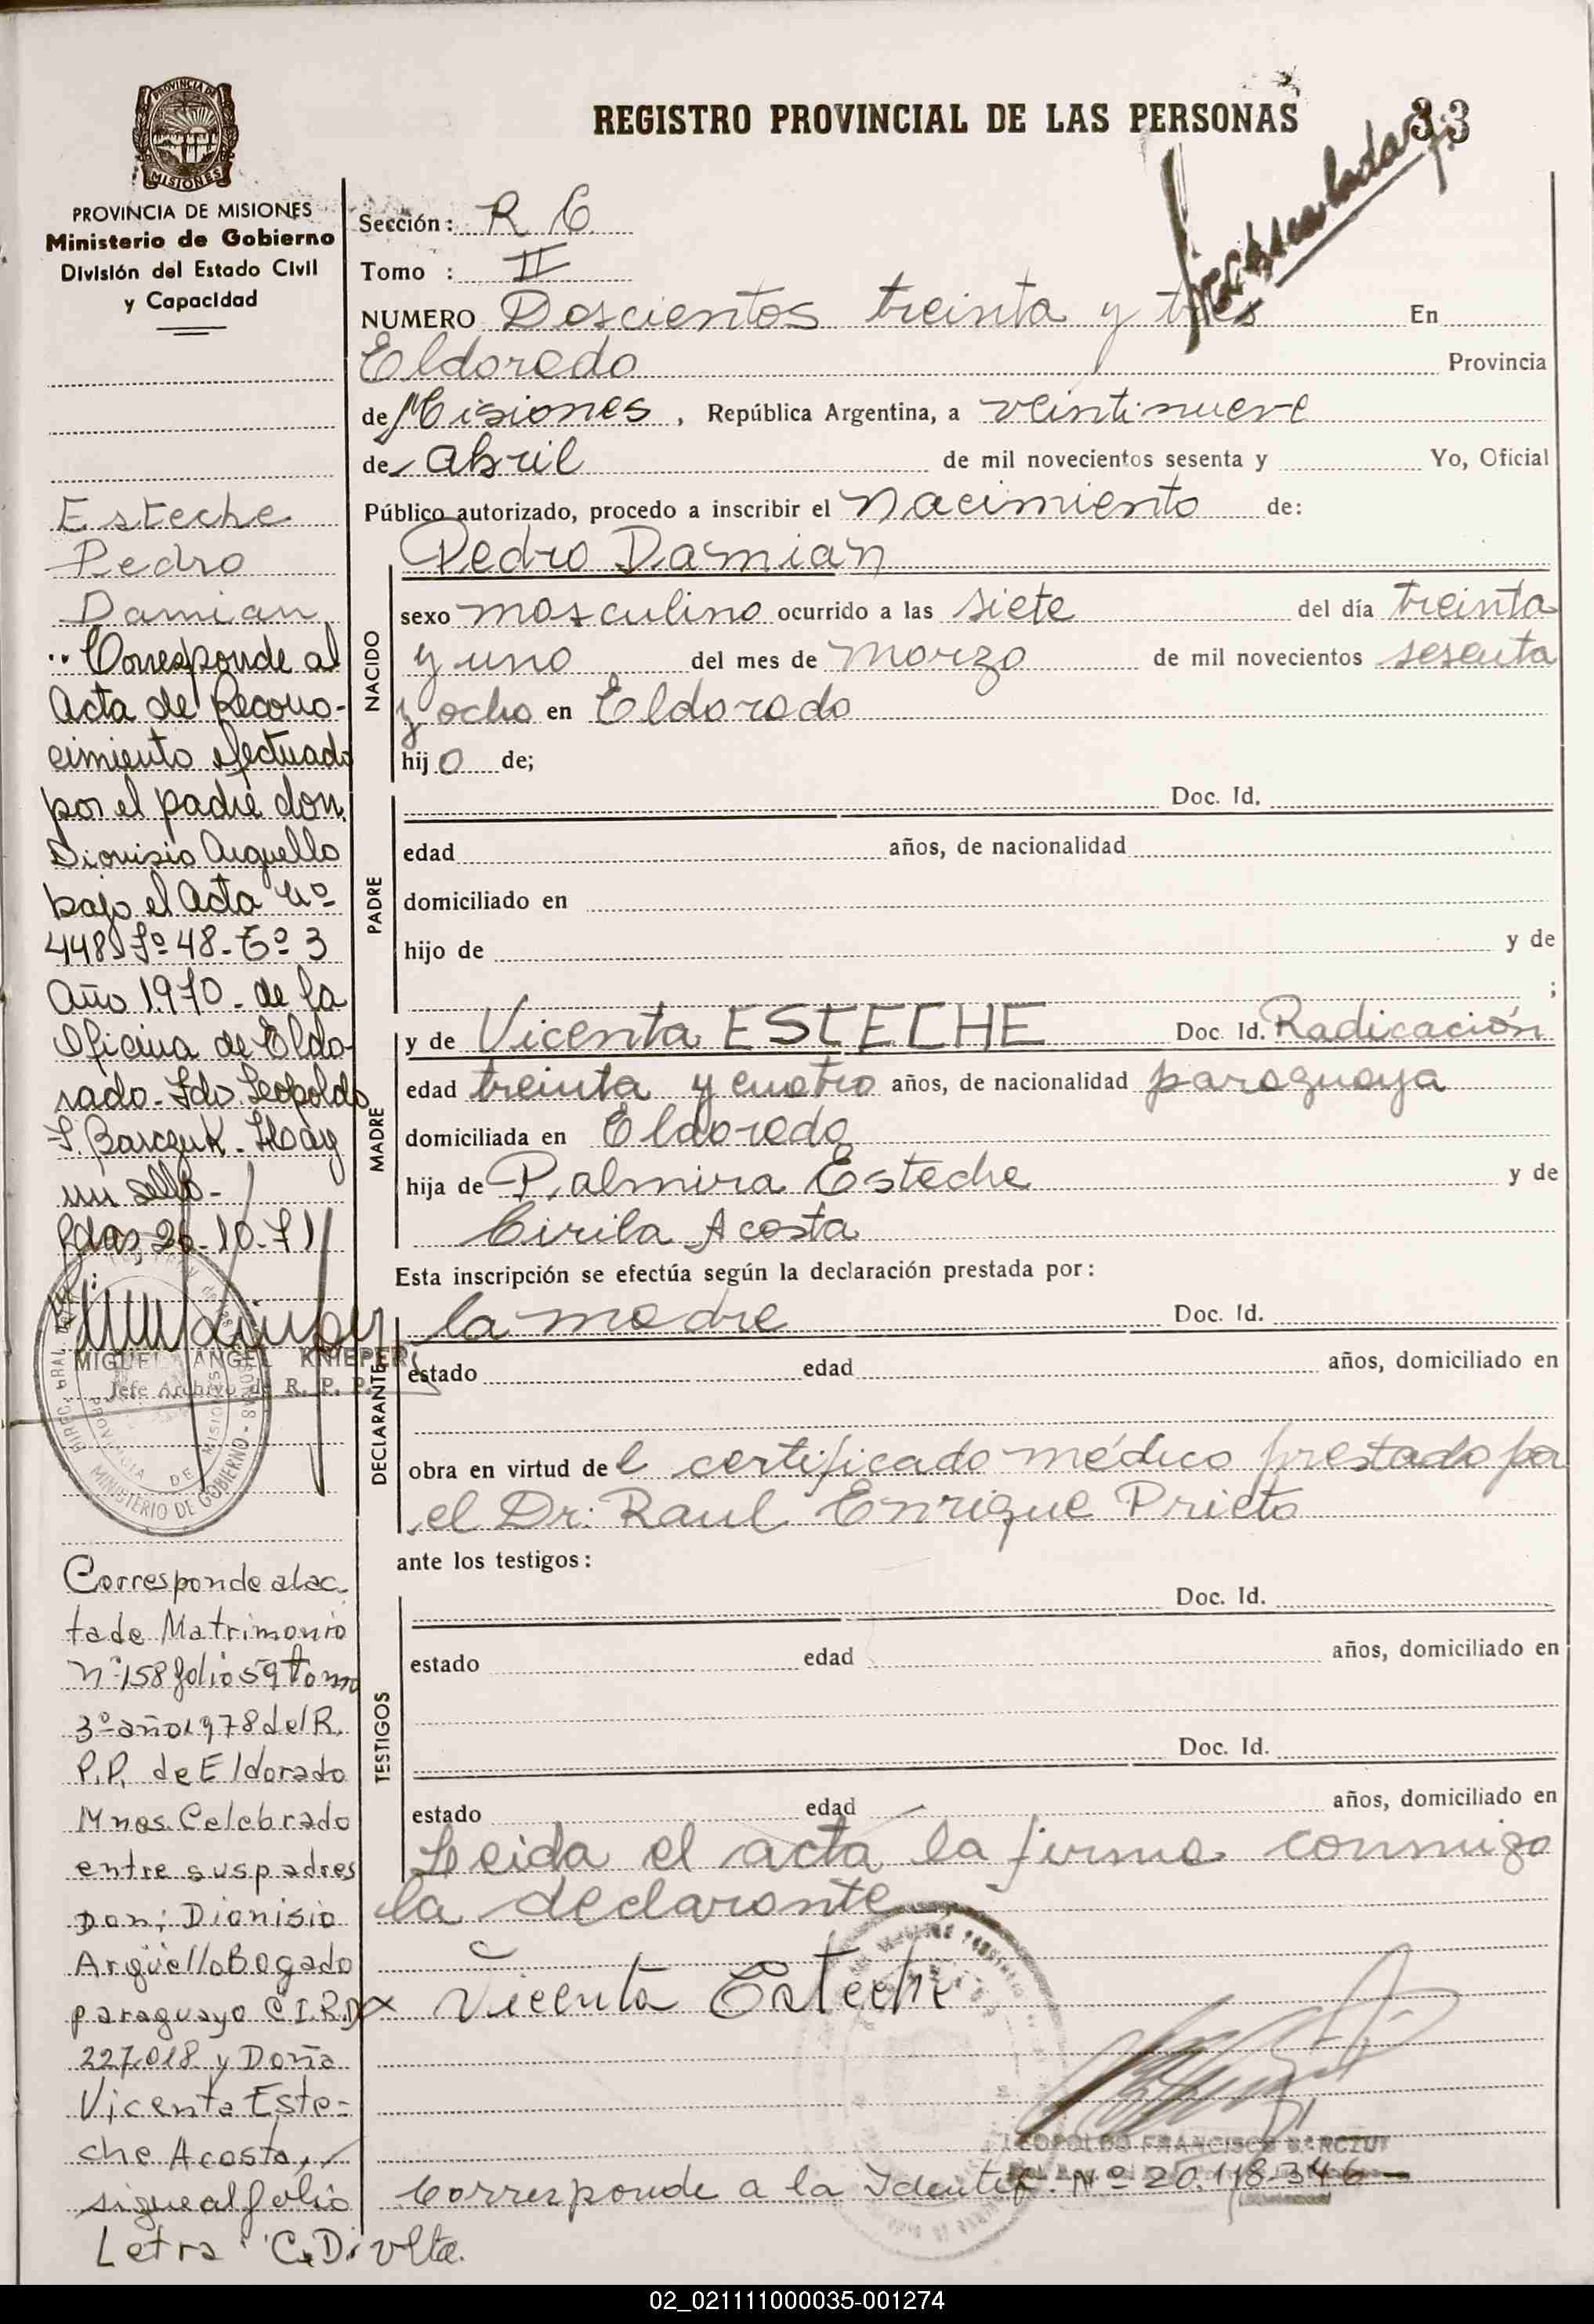 REGISTRO PROVINCIAL DE LAS PERSONAS
33
PROVINCIA DE
MISIONES
PROVINCIA DE MISIONES
Ministerio de Gobierno
División del Estado Civil
y Capacidad
Esteche
Pedro
Damian
Corresponde al
Acta de Recono-
cimiento efectuado
por el padre don
Dionisio Arguello
bajo el Acta Nº
448 Fº 48 - Tº 3
Año 1970 - de la
Oficina de Eldo-
rado - Fdo Leopoldo
F. Barczuk - Hay
un sello -
Pdas 26-10-71
MIGUEL ANGEL KNIEPER
Jefe Archivo de R. P. P.
MINISTERIO DE GOBIERNO
PROVINCIA DE MISIONES
Corresponde al ac-
ta de Matrimonio
Nº 158 folio 59 tomo
3º año 1978 del R.
P.P. de Eldorado
Mnes. Celebrado
entre sus padres
Don: Dionisio
Argüello Bogado
paraguayo C.I.R.D
227.018 y Doña
Vicenta Este-
che Acosta,
sigue al folio
Letra "C.D" vlta.
Sección: R C
Tomo : II
NUMERO Doscientos treinta y tres En
Eldorado Provincia
de Misiones, República Argentina, a veintinueve
de abril de mil novecientos sesenta y Yo, Oficial
Público autorizado, procedo a inscribir el nacimiento de:
Pedro Damian
NACIDO
sexo masculino ocurrido a las siete del día treinta
y uno del mes de marzo de mil novecientos sesenta
y ocho en Eldorado
hijo de;
PADRE
Doc. Id.
edad años, de nacionalidad
domiciliado en
hijo de y de
;
MADRE
y de Vicenta ESTECHE Doc. Id. Radicación
edad treinta y cuatro años, de nacionalidad paraguaya
domiciliada en Eldorado
hija de Palmira Esteche y de
Cirila Acosta
Esta inscripción se efectúa según la declaración prestada por:
DECLARANTE
la madre Doc. Id.
estado edad años, domiciliado en
obra en virtud del certificado médico prestado por
el Dr: Raul Enrique Prieto
ante los testigos:
TESTIGOS
Doc. Id.
estado edad años, domiciliado en
Doc. Id.
estado edad años, domiciliado en
Leida el acta la firma conmigo
la declarante
x Vicenta Esteche
LEOPOLDO FRANCISCO BARCZUK
Corresponde a la Identif. Nº 20.118.346 -
02_021111000035-001274